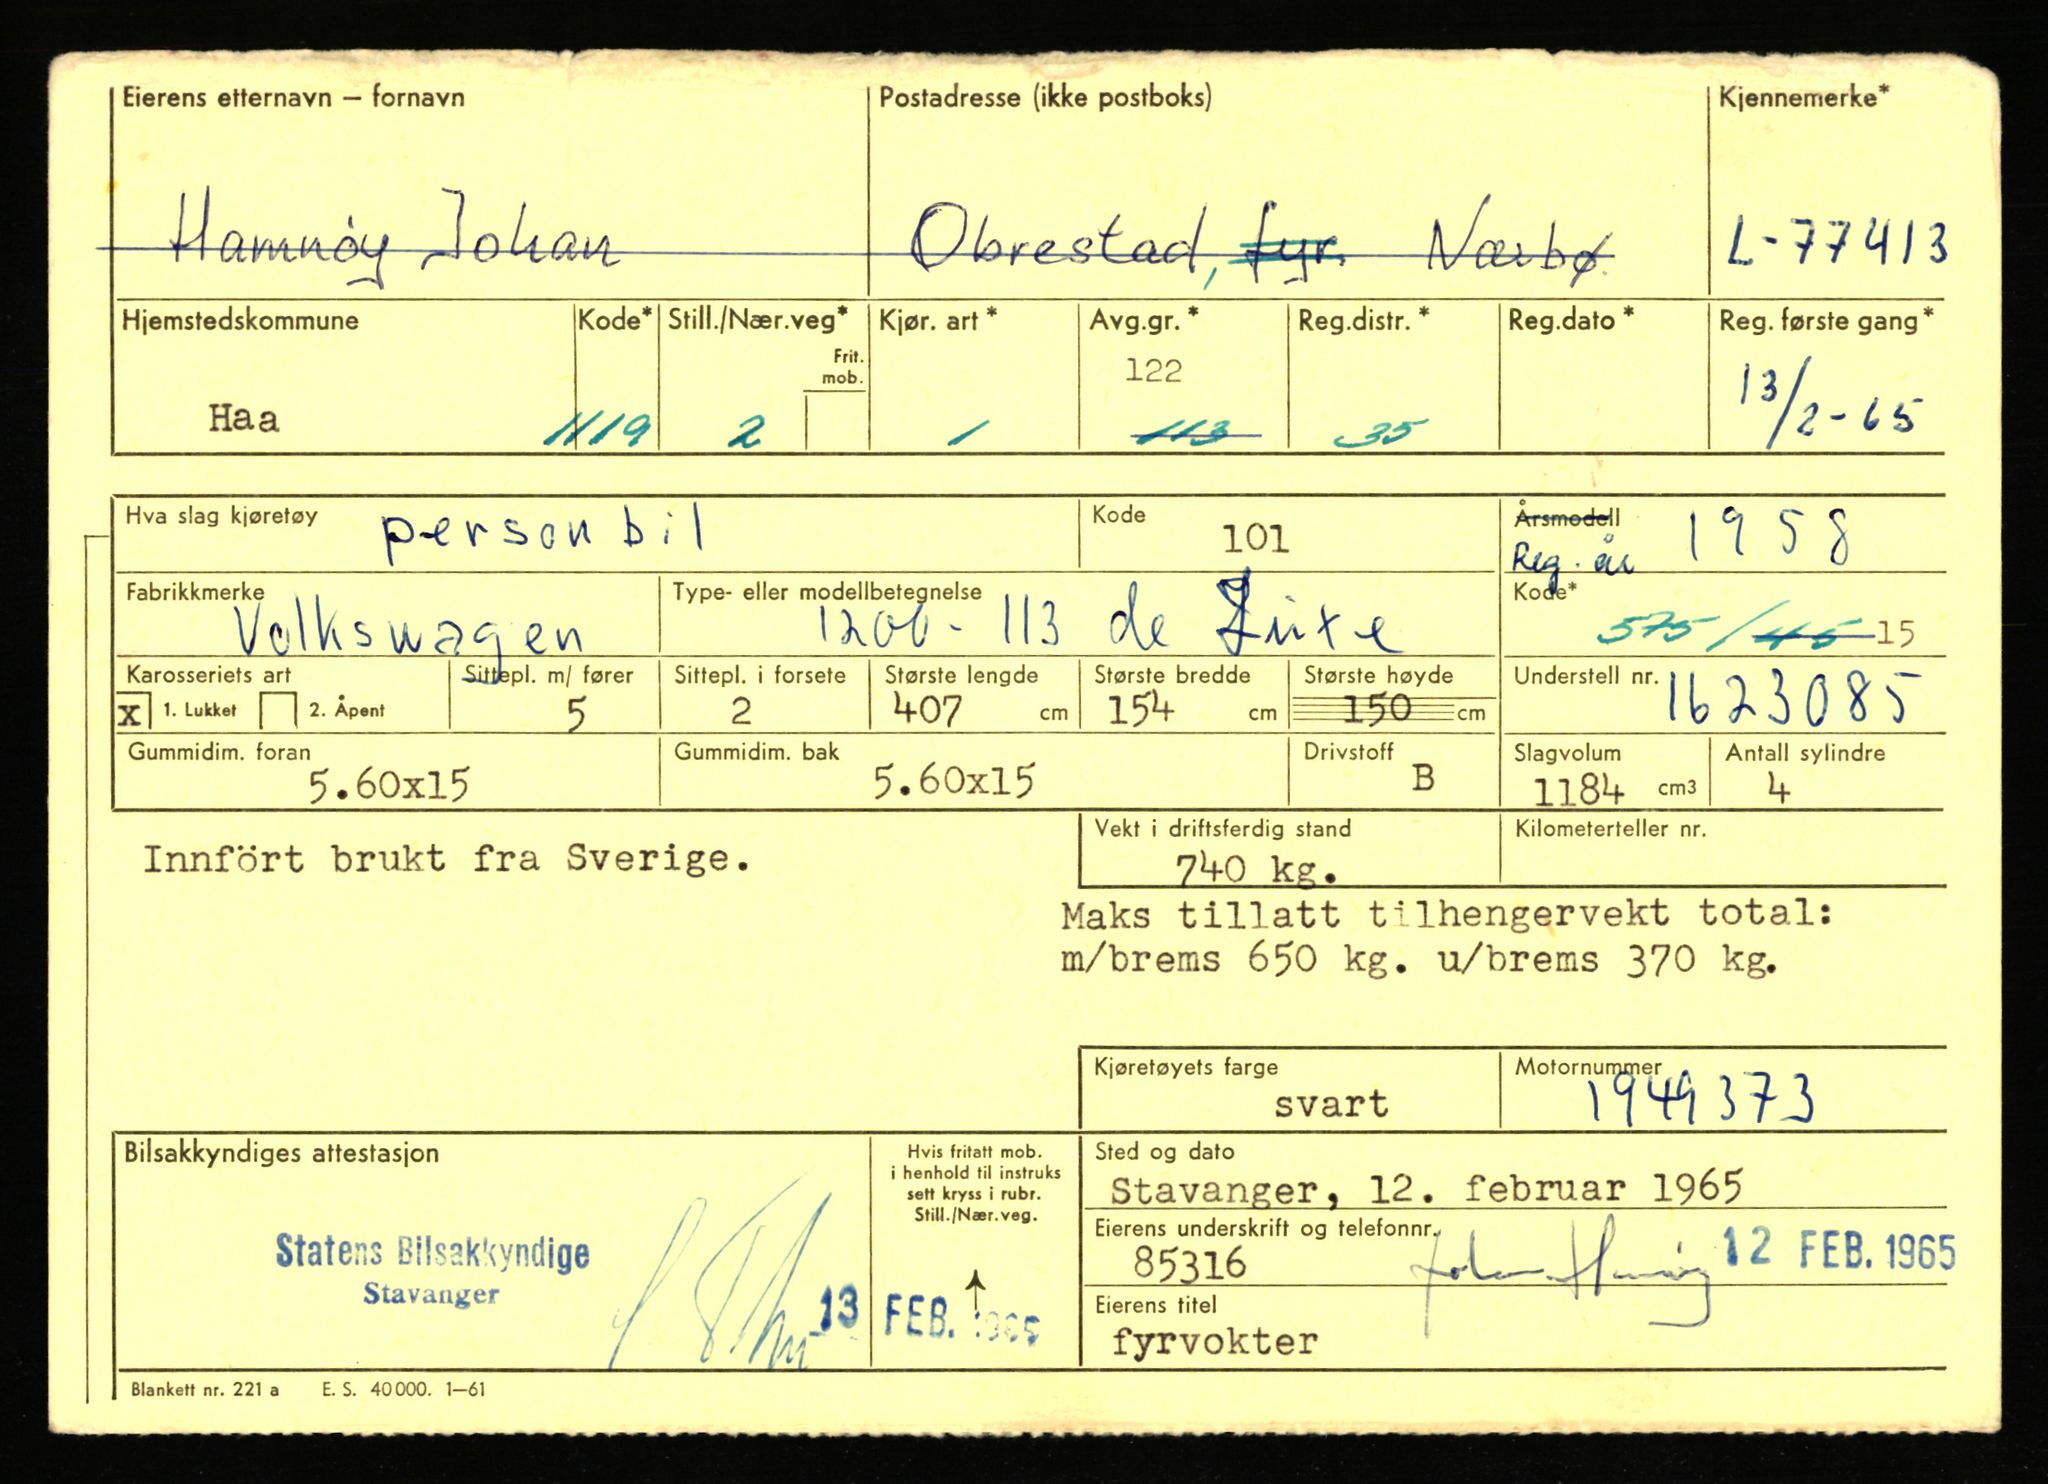 Eierens etternavn – fornavn Postadresse (ikke postboks) Kjennemerke*
Hamnöy Johan Obrestad, fyr. Nærbø L-77413
Hjemstedskommune Kode* Still./Nær.veg* Kjør. art * Avg.gr. * Reg.distr. * Reg.dato * Reg. første gang*
Frit. mob.
122
Haa 1119 2 1 113 35 13/2-65
Hva slag kjøretøy personbil Kode 101 Årsmodell 1958
Reg. år
Fabrikkmerke Type- eller modellbetegnelse Kode*
Volkswagen 1200-113 de Luxe 575/45 15
Karosseriets art Sittepl. m/ fører Sittepl. i forsete Største lengde Største bredde Største høyde Understell nr. 1623085
x 1. Lukket 2. Åpent 5 2 407 cm 154 cm 150 cm
Gummidim. foran Gummidim. bak Drivstoff Slagvolum Antall sylindre
5.60x15 5.60x15 B 1184 cm3 4
Vekt i driftsferdig stand Kilometerteller nr.
Innfört brukt fra Sverige. 740 kg.
Maks tillatt tilhengervekt total:
m/brems 650 kg. u/brems 370 kg.
Kjøretøyets farge Motornummer
svart 1949373
Bilsakkyndiges attestasjon Hvis fritatt mob. Sted og dato
i henhold til instruks
sett kryss i rubr. Stavanger, 12. februar 1965
Still./Nær.veg. Eierens underskrift og telefonnr.
Statens Bilsakkyndige 85316 Johan Hamnöy 12 FEB. 1965
Stavanger 13 FEB. 1965 Eierens titel
fyrvokter
Blankett nr. 221 a E. S. 40000. 1–61